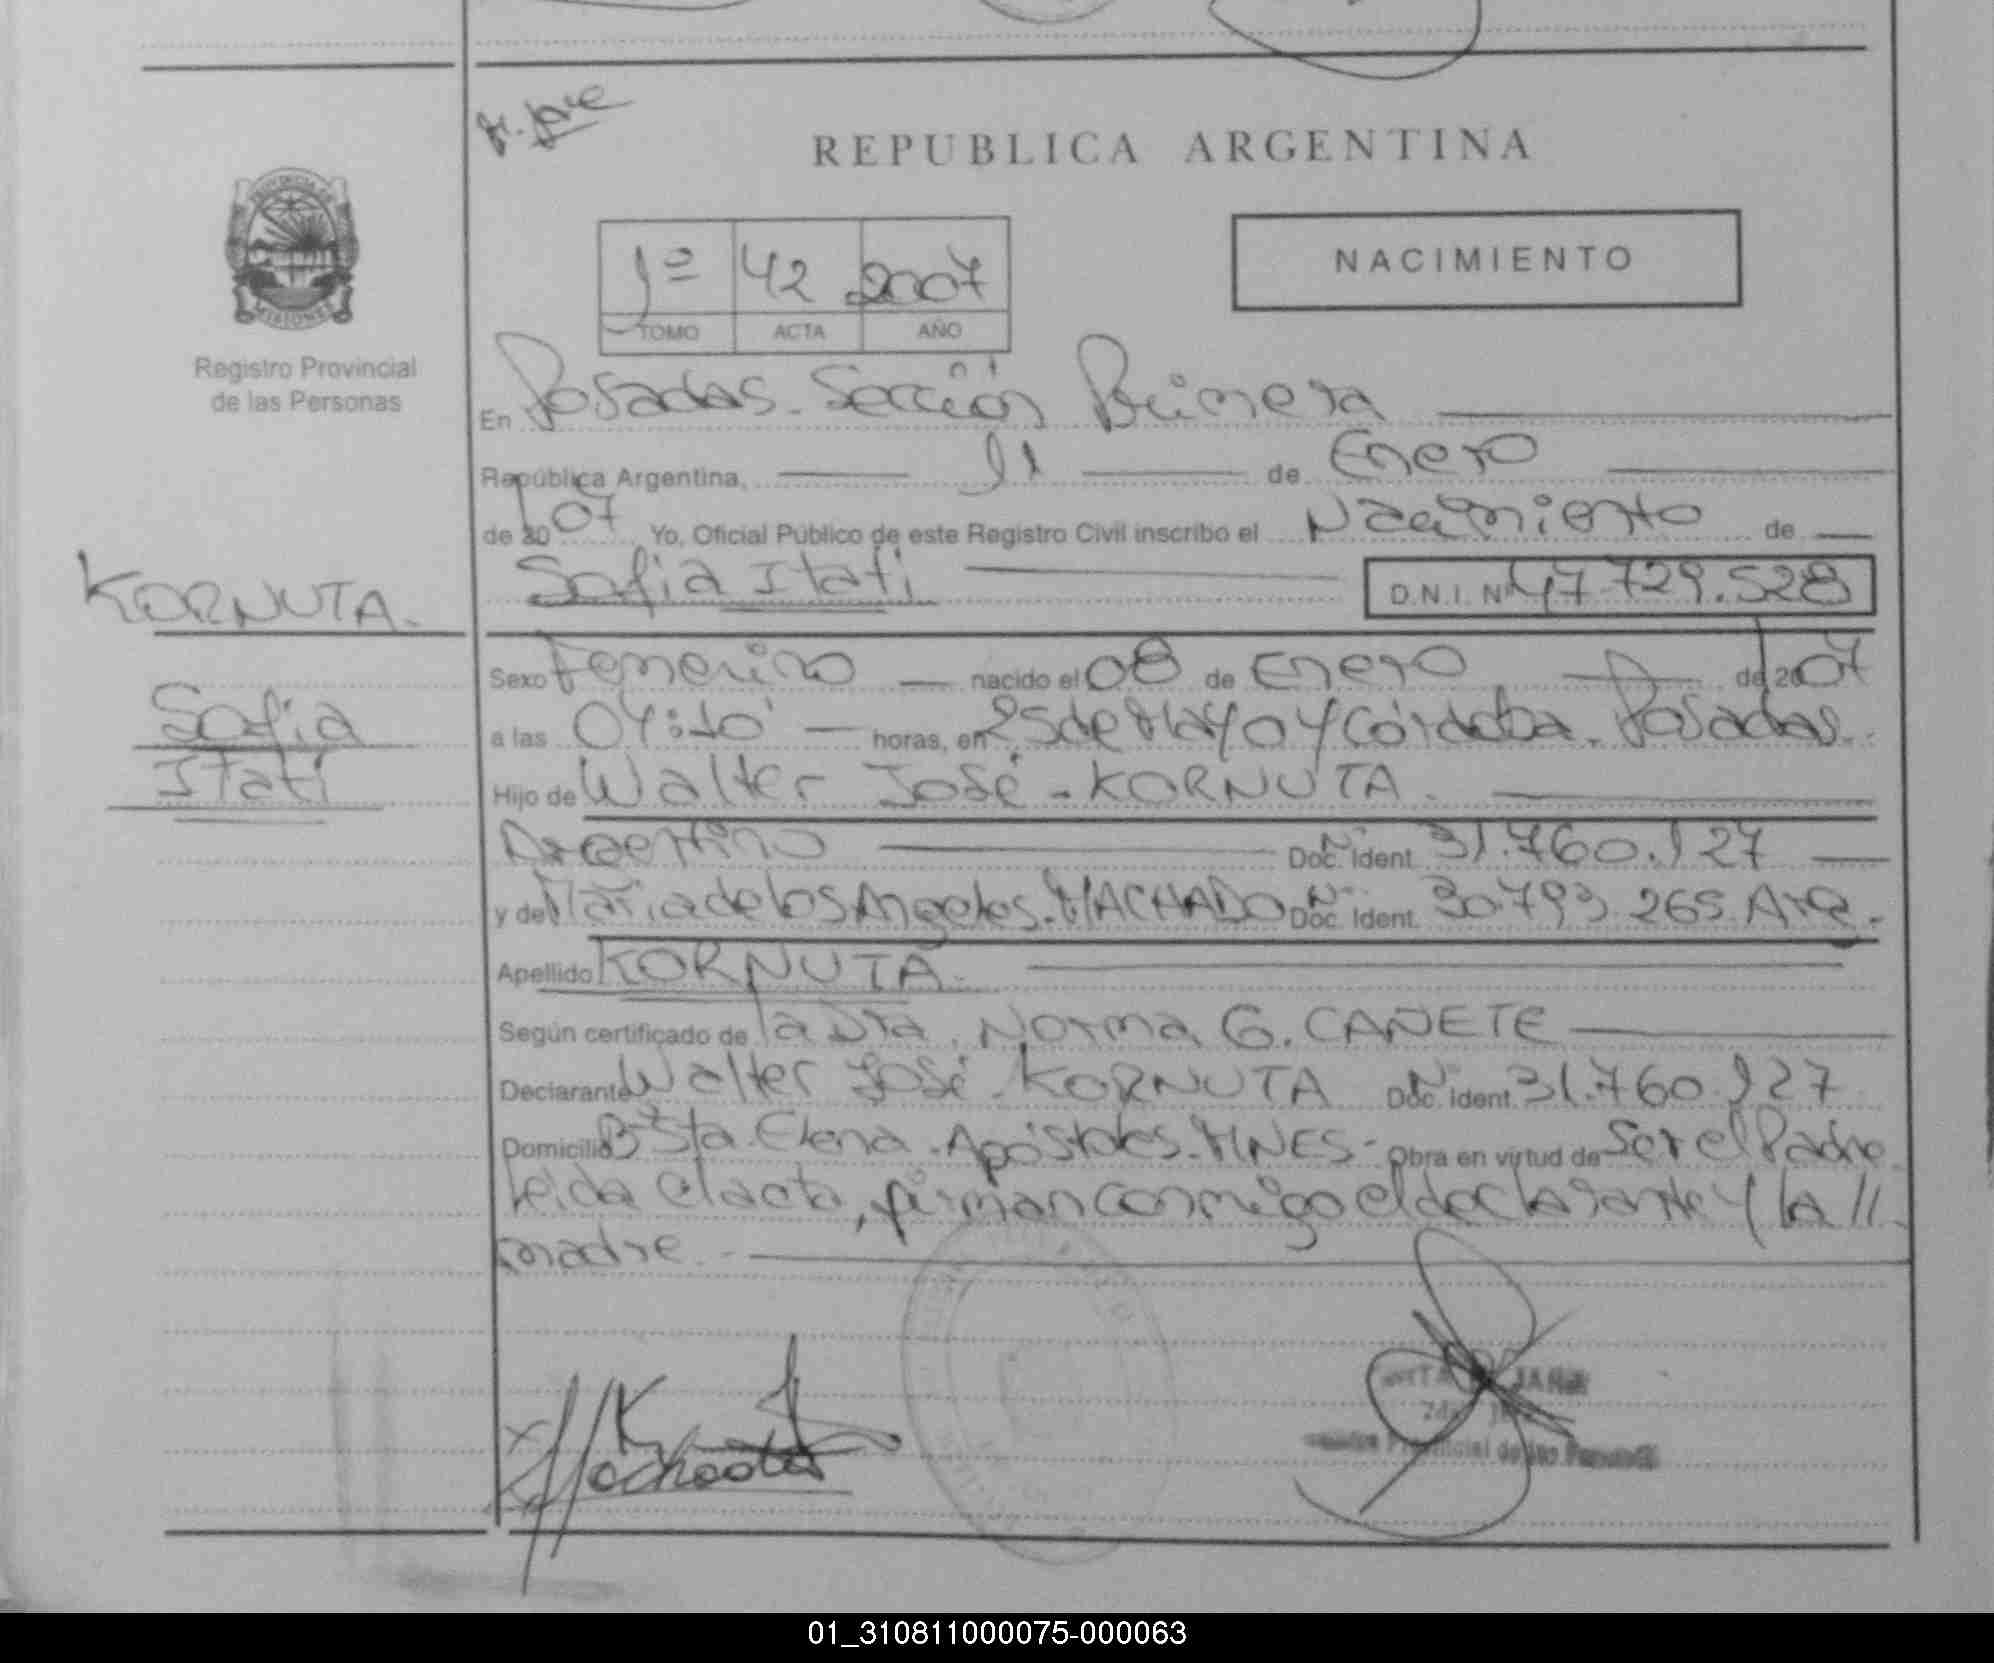 REPUBLICA ARGENTINA
PROVINCIA DE
MISIONES
Registro Provincial
de las Personas
1º 42 2007
TOMO ACTA AÑO
NACIMIENTO
En Posadas. Sección Primera
República Argentina, 11 de Enero
de 2007 Yo, Oficial Público de este Registro Civil inscribo el Nacimiento de
Sofia Itati D.N.I. Nº 47.729.528
KORNUTA.
Sofia
Itati
Sexo Femenino nacido el 08 de Enero de 2007
a las 04:10' horas, en 25 de Mayo y Córdoba. Posadas.
Hijo de Walter José - KORNUTA.
Argentino Doc. Ident. Nº 31.760.127
y de Maria de los Angeles. MACHADO Doc. Ident. Nº 30.793.265 Arg.
Apellido KORNUTA.
Según certificado de la Dra. Norma G. CAÑETE
Declarante Walter José - KORNUTA Doc. Ident. Nº 31.760.127
Domicilio Bº Sta. Elena - Apóstoles. MNES - Obra en virtud de Ser el Padre
Leida el acta, firman conmigo el declarante y la //
madre.
01_310811000075-000063